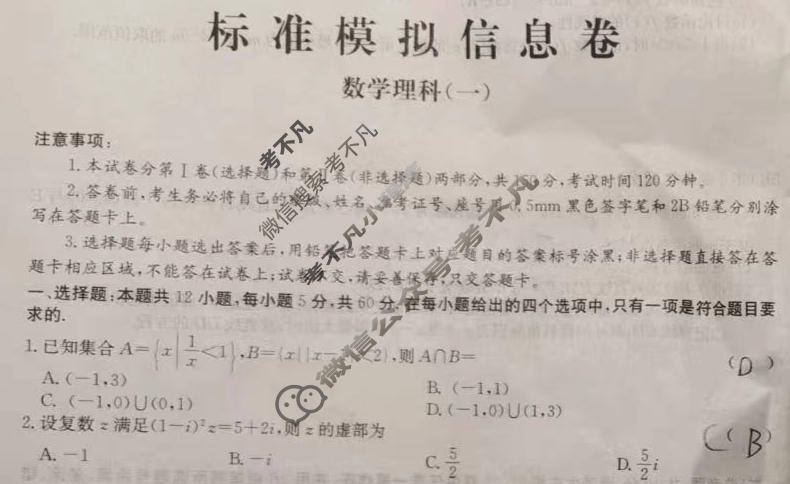 标准模拟信息卷
数学理科(一)
注意事项:
1.本试卷分第Ⅰ卷(选择题)和第 卷(非选择题)两部分,共150分,考试时间120分钟。
2.答卷前,考生务必将自己的 、姓名、 考证号、座号用0.5mm黑色签字笔和2B铅笔分别涂
写在答题卡上。
3.选择题每小题选出答案后,用铅笔把答题卡上对应题目的答案标号涂黑;非选择题直接答在答
题卡相应区域,不能答在试卷上;试卷 交,请妥善保存,只交答题卡。
一、选择题:本题共12小题,每小题5分,共60分,在每小题给出的四个选项中,只有一项是符合题目要
求的.
1.已知集合A={x|1/x<1},B={x||x-1|<2},则A∩B= (D)
A.(-1,3) B.(-1,1)
C.(-1,0)∪(0,1) D.(-1,0)∪(1,3)
2.设复数z满足(1-i)²z=5+2i,则z的虚部为 C(B)
A.-1 B.-i C.5/2 D.5/2 i
考不凡
微信搜索考不凡
考不凡小
微信公众号考不凡